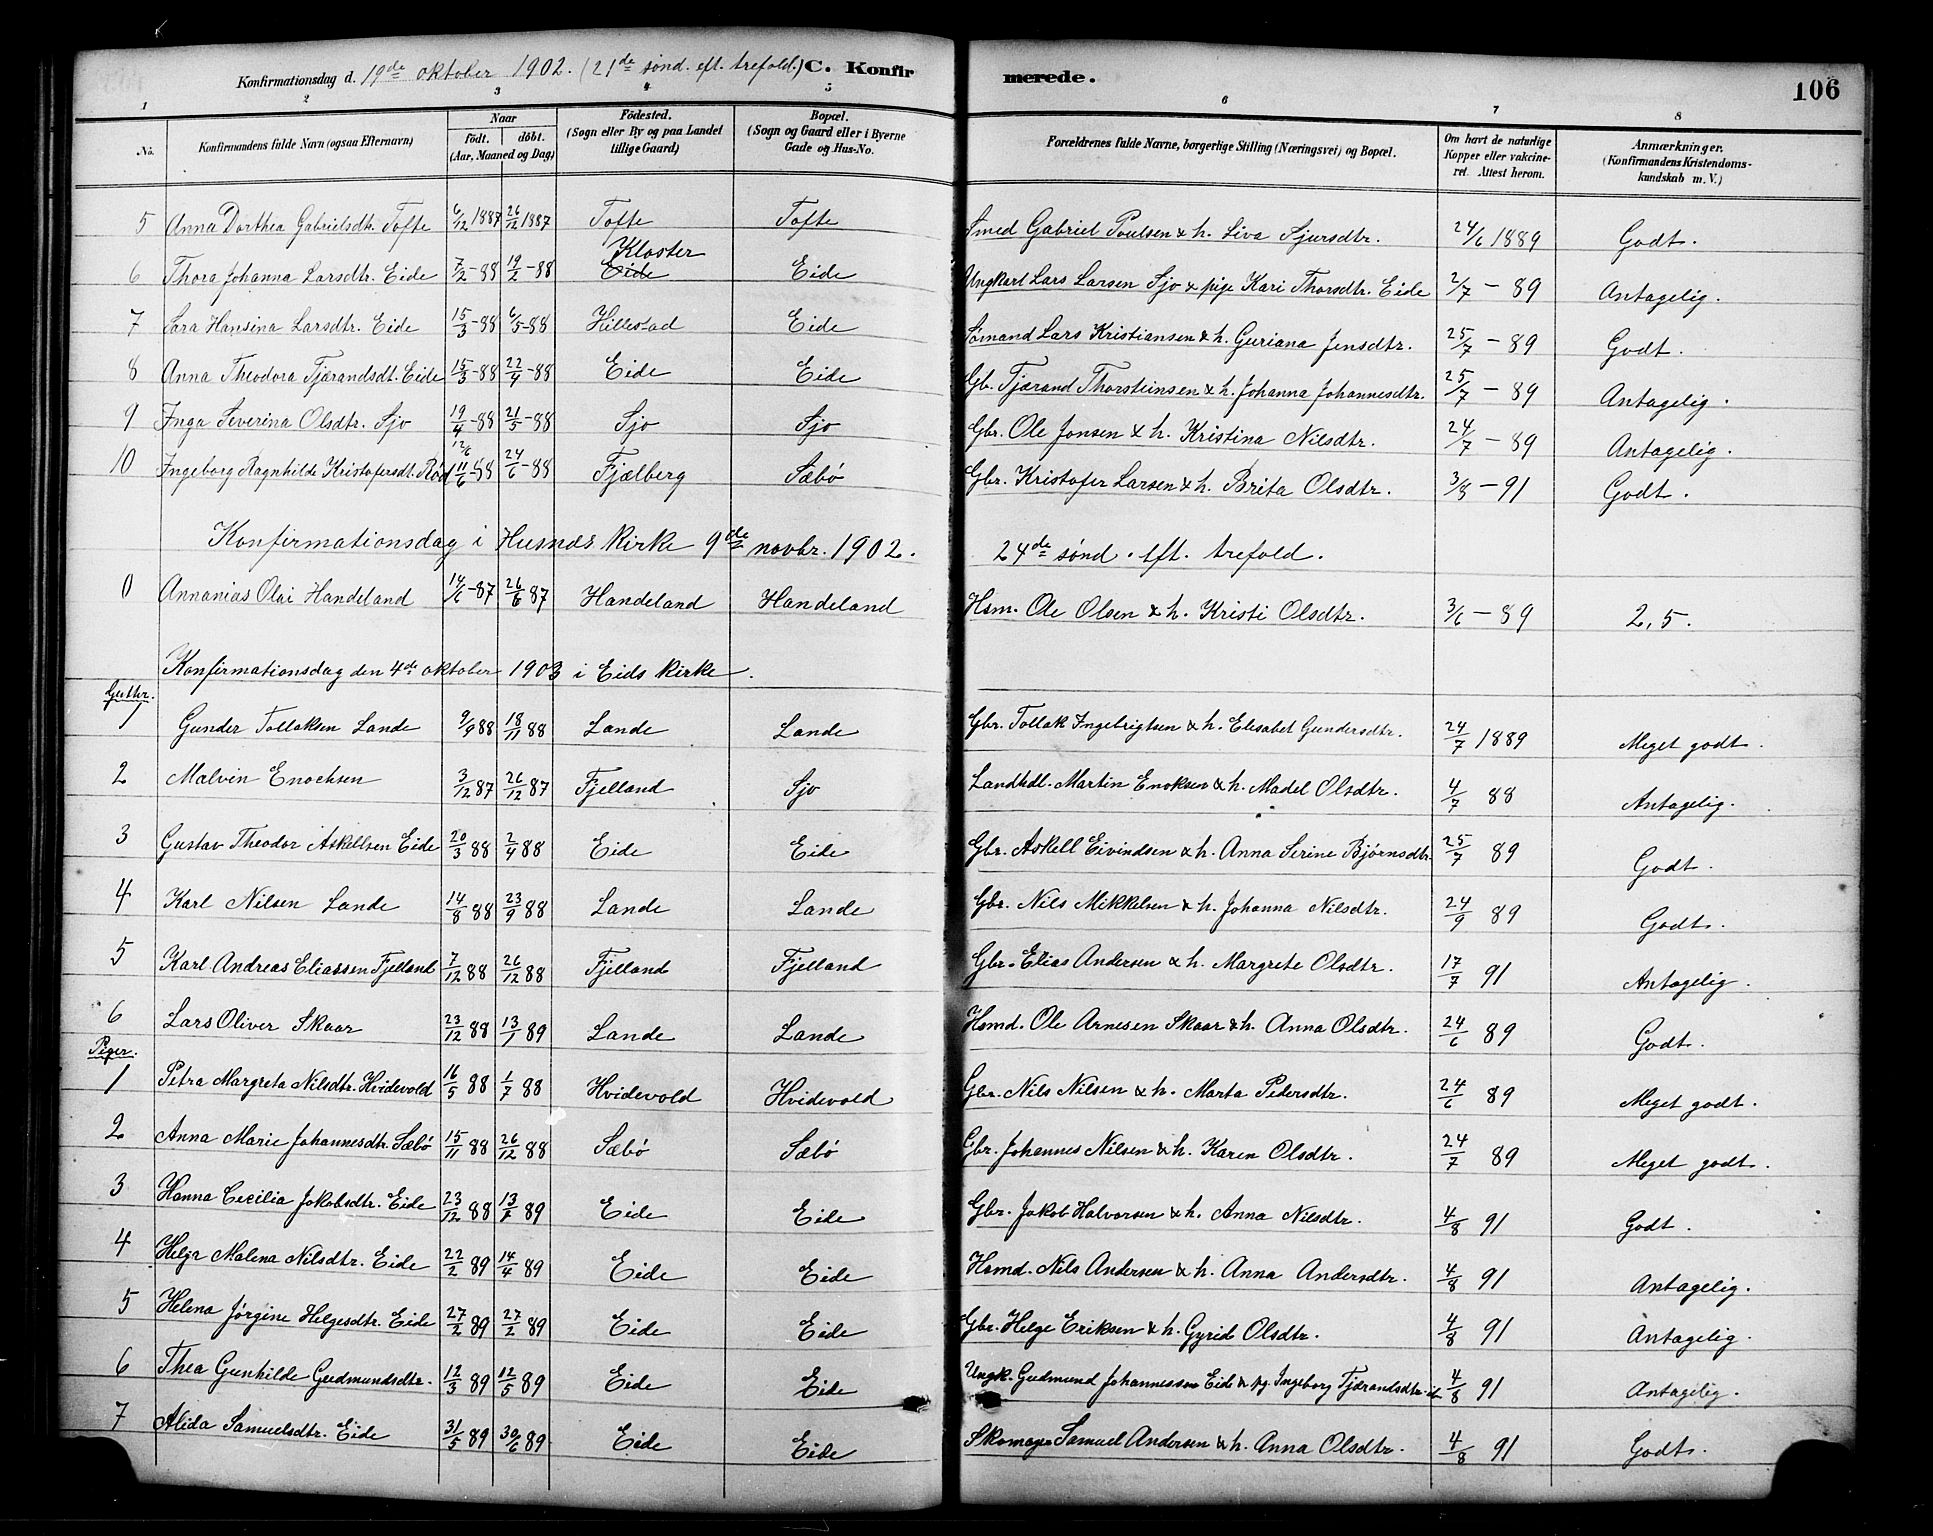 Konfirmationsdag d. 19de oktober 1902. (21de sønd. eft. trefold.) C. Konfirmerede. 106
1 2 3 4 5 6 7 8
No. Konfirmandens fulde Navn (ogsaa Efternavn) Naar født. døbt. (Aar, Maaned og Dag) Fødested. (Sogn eller By og paa Landet tillige Gaard) Bopæl. (Sogn og Gaard eller i Byerne Gade og Hus-No. Forældrenes fulde Navne, borgerlige Stilling (Næringsvei) og Bopæl. Om havt de naturlige Kopper eller vakcineret. Attest herom. Anmærkninger. (Konfirmandens Kristendomskundskab m. V.)
5 Anna Dorthea Gabrielsdtr. Tofte 6/12 1887 26/12 1887 Tofte Tofte Smed Gabriel Poulsen & h. Siva Sjursdtr. 24/6 1889 Godt.
6 Thora Johanna Larsdtr. Eide 7/2-88 19/2-88 Kloster Eide Eide Ungkarl Lars Larsen Sjo & pige Kari Thorsdtr. Eide 2/7-89 Antagelig.
7 Sara Hansina Larsdtr. Eide 15/3-88 6/5-88 Hillestad Eide Sømand Lars Kristiansen & h. Guriana Jensdtr. 25/7-89 Godt.
8 Anna Theodora Tjærandsdt. Eide 15/3-88 22/4-88 Eide Eide Gb. Tjærand Thorsteinsen & h. Johanna Johannesdtr. 25/7-89 Antagelig.
9 Inga Severina Olsdtr. Sjo 19/4-88 21/5-88 Sjo Sjo Gbr. Ole Jonsen & h. Kristina Nilsdtr. 24/7-89 Antagelig.
10 Ingeborg Ragnhilde Kristofersdt. Rød 11/6-88 24/6-88 Fjælberg Sæbø Gbr. Kristofer Larsen & h. Brita Olsdtr. 3/8-91 Godt.
Konfirmationsdag i Husnæs kirke 9de novbr. 1902. 24de sønd. eft. trefold.
0 Annanias Olai Handeland 14/6-87 26/6 87 Handeland Handeland Hsm. Ole Olsen & h. Kristi Olsdtr. 3/6-89 2,5.
Konfirmationsdag den 4de oktober 1903 i Eids kirke.
Gutter.
1 Gunder Tollaksen Lande 9/9 88 18/11 88 Lande Lande Gbr. Tollak Ingebrigtsen & h. Elisabet Gundersdtr. 24/7 1889 Meget godt.
2 Malvin Enochsen 3/12 87 26/12 87 Fjelland Sjo Landhdl. Martin Enoksen & h. Madel Olsdtr. 4/7 88 Antagelig.
3 Gustav Theodor Askellsen Eide 20/3 88 2/4 88 Eide Eide Gbr. Askell Eivindsen & h. Anna Serine Bjørnsdtr. 25/7 89 Godt.
4 Karl Nilsen Lande 14/8 88 23/9 88 Lande Lande Gbr. Nils Mikkelsen & h. Johanna Nilsdtr. 24/9 89 Godt.
5 Karl Andreas Eliassen Fjelland 7/12 88 26/12 88 Fjelland Fjelland Gbr. Elias Andersen & h. Margrete Olsdtr. 17/7 91 Antagelig.
6 Lars Oliver Skaar 23/12 88 13/1 89 Lande Lande Hsmd. Ole Arnesen Skaar & h. Anna Olsdtr. 24/6 89 Godt.
Piger.
1 Petra Margreta Nilsdtr. Hvidevold 16/5 88 1/7 88 Hvidevold Hvidevold Gbr. Nils Nilsen & h. Marta Pedersdtr. 24/6 89 Meget godt.
2 Anna Marie Johannesdtr. Sæbø 15/11 88 26/12 88 Sæbø Sæbø Gbr. Johannes Nilsen & h. Karen Olsdtr. 24/7 89 Meget godt.
3 Hanna Cecilia Jakobsdtr. Eide 23/12 88 13/1 89 Eide Eide Gbr. Jakob Halvorsen & h. Anna Nilsdtr. 4/8 91 Godt.
4 Helga Malena Nilsdtr. Eide 22/2 89 14/4 89 Eide Eide Hsmd. Nils Andersen & h. Anna Andersdtr. 4/8 91 Antagelig.
5 Helena Jørgine Helgesdtr. Eide 27/2 89 27/2 89 Eide Eide Gbr. Helge Eriksen & h. Gyrid Olsdtr. 4/8 91 Antagelig.
6 Thea Gunhilde Gudmundsdtr. 12/3 89 12/5 89 Eide Eide Ungk. Gudmund Johannessen Eide & pg. Ingeborg Tjærandsdtr. 4/8 91 Antagelig.
7 Alida Samuelsdtr. Eide 31/5 89 30/6 89 Eide Eide Skomager Samuel Andersen & h. Anna Olsdtr. 4/8 91 Godt.